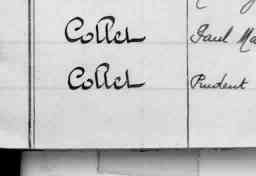 Collet Paul Ma
Collet Prudent